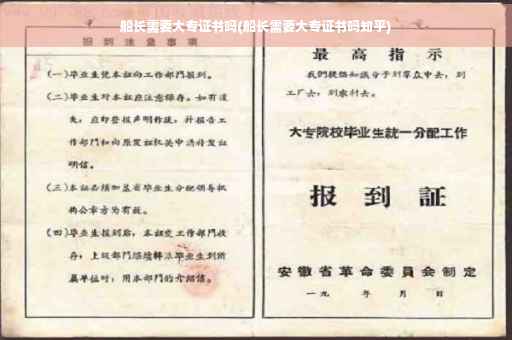 船长需要大专证书吗(船长需要大专证书吗知乎)
报到注意事项
(一)毕业生凭本证向工作部门报到。
(二)毕业生对本证应注意保存。如有遗
失,应即登报声明作废,并报告工
作部门和向原发证机关申请补发证
明信。
(三)本证必须加盖省毕业生分配领导机
构公章方为有效。
(四)毕业生报到后,本证交工作部门收
存;上级部门
毕业生到所
属单位时,用本部门的介绍信。
最高指示
我们提倡知识分子到群众中去,到
工厂去,到农村去。
大专院校毕业生统一分配工作
报到証
安徽省革命委员会制定
一九 年 月 日